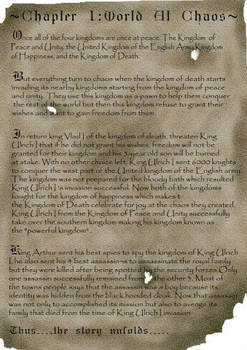 ~Chapter 1:World At Chaos~
Once all of the four kingdoms are once at peace. The Kingdom of
Peace and Unity, the United Kingdom of the English Army, Kingdom
of Happiness, and the Kingdom of Death.
But everything turn to chaos when the kingdom of death starts
invading its nearby kingdoms starting from the kingdom of peace
and unity. They use this kingdom as a pawn to help them conquer
the rest of the world but then this kingdom refuse to grant their
wishes and want to gain freedom from them.
In return king Vlad I of the kingdom of death, threaten King
Ulrich I that if he did not grant his wishes, freedom will not be
granted for their kingdom and his 3 year old son will be burned
at stake. With no other choice left, King Ulrich I sent 6000 knights
to conquer the west part of the (United kingdom of the English army
The kingdom was not prepared for the bloody bath which resulted
King Ulrich I's invasion successful. Now both of the kingdoms
fought for the kingdom of happiness which makes t
the Kingdom of Death celebrate for joy at the chaos they created.
King Ulrich I from the Kingdom of Peace and Unity successfully
take over the southern kingdom making his kingdom known as
the "fortified kingdom".
King Arthur sent his best spies to spy the kingdom of King Ulrich.
He also sent his 4 best assassin-s to assassinate the royal family
but they were killed after being spotted by the security forces. Only
one assassin successfully remained from the other 3. Most of
the towns people says that the assassin was a boy because its
identity was hidden from the black hooded cloak. Now that assassin
was not only to accomplished its mission but also to avenge its
family that died from the time of King Ulrich I invasion
Thus....the story unfolds.....